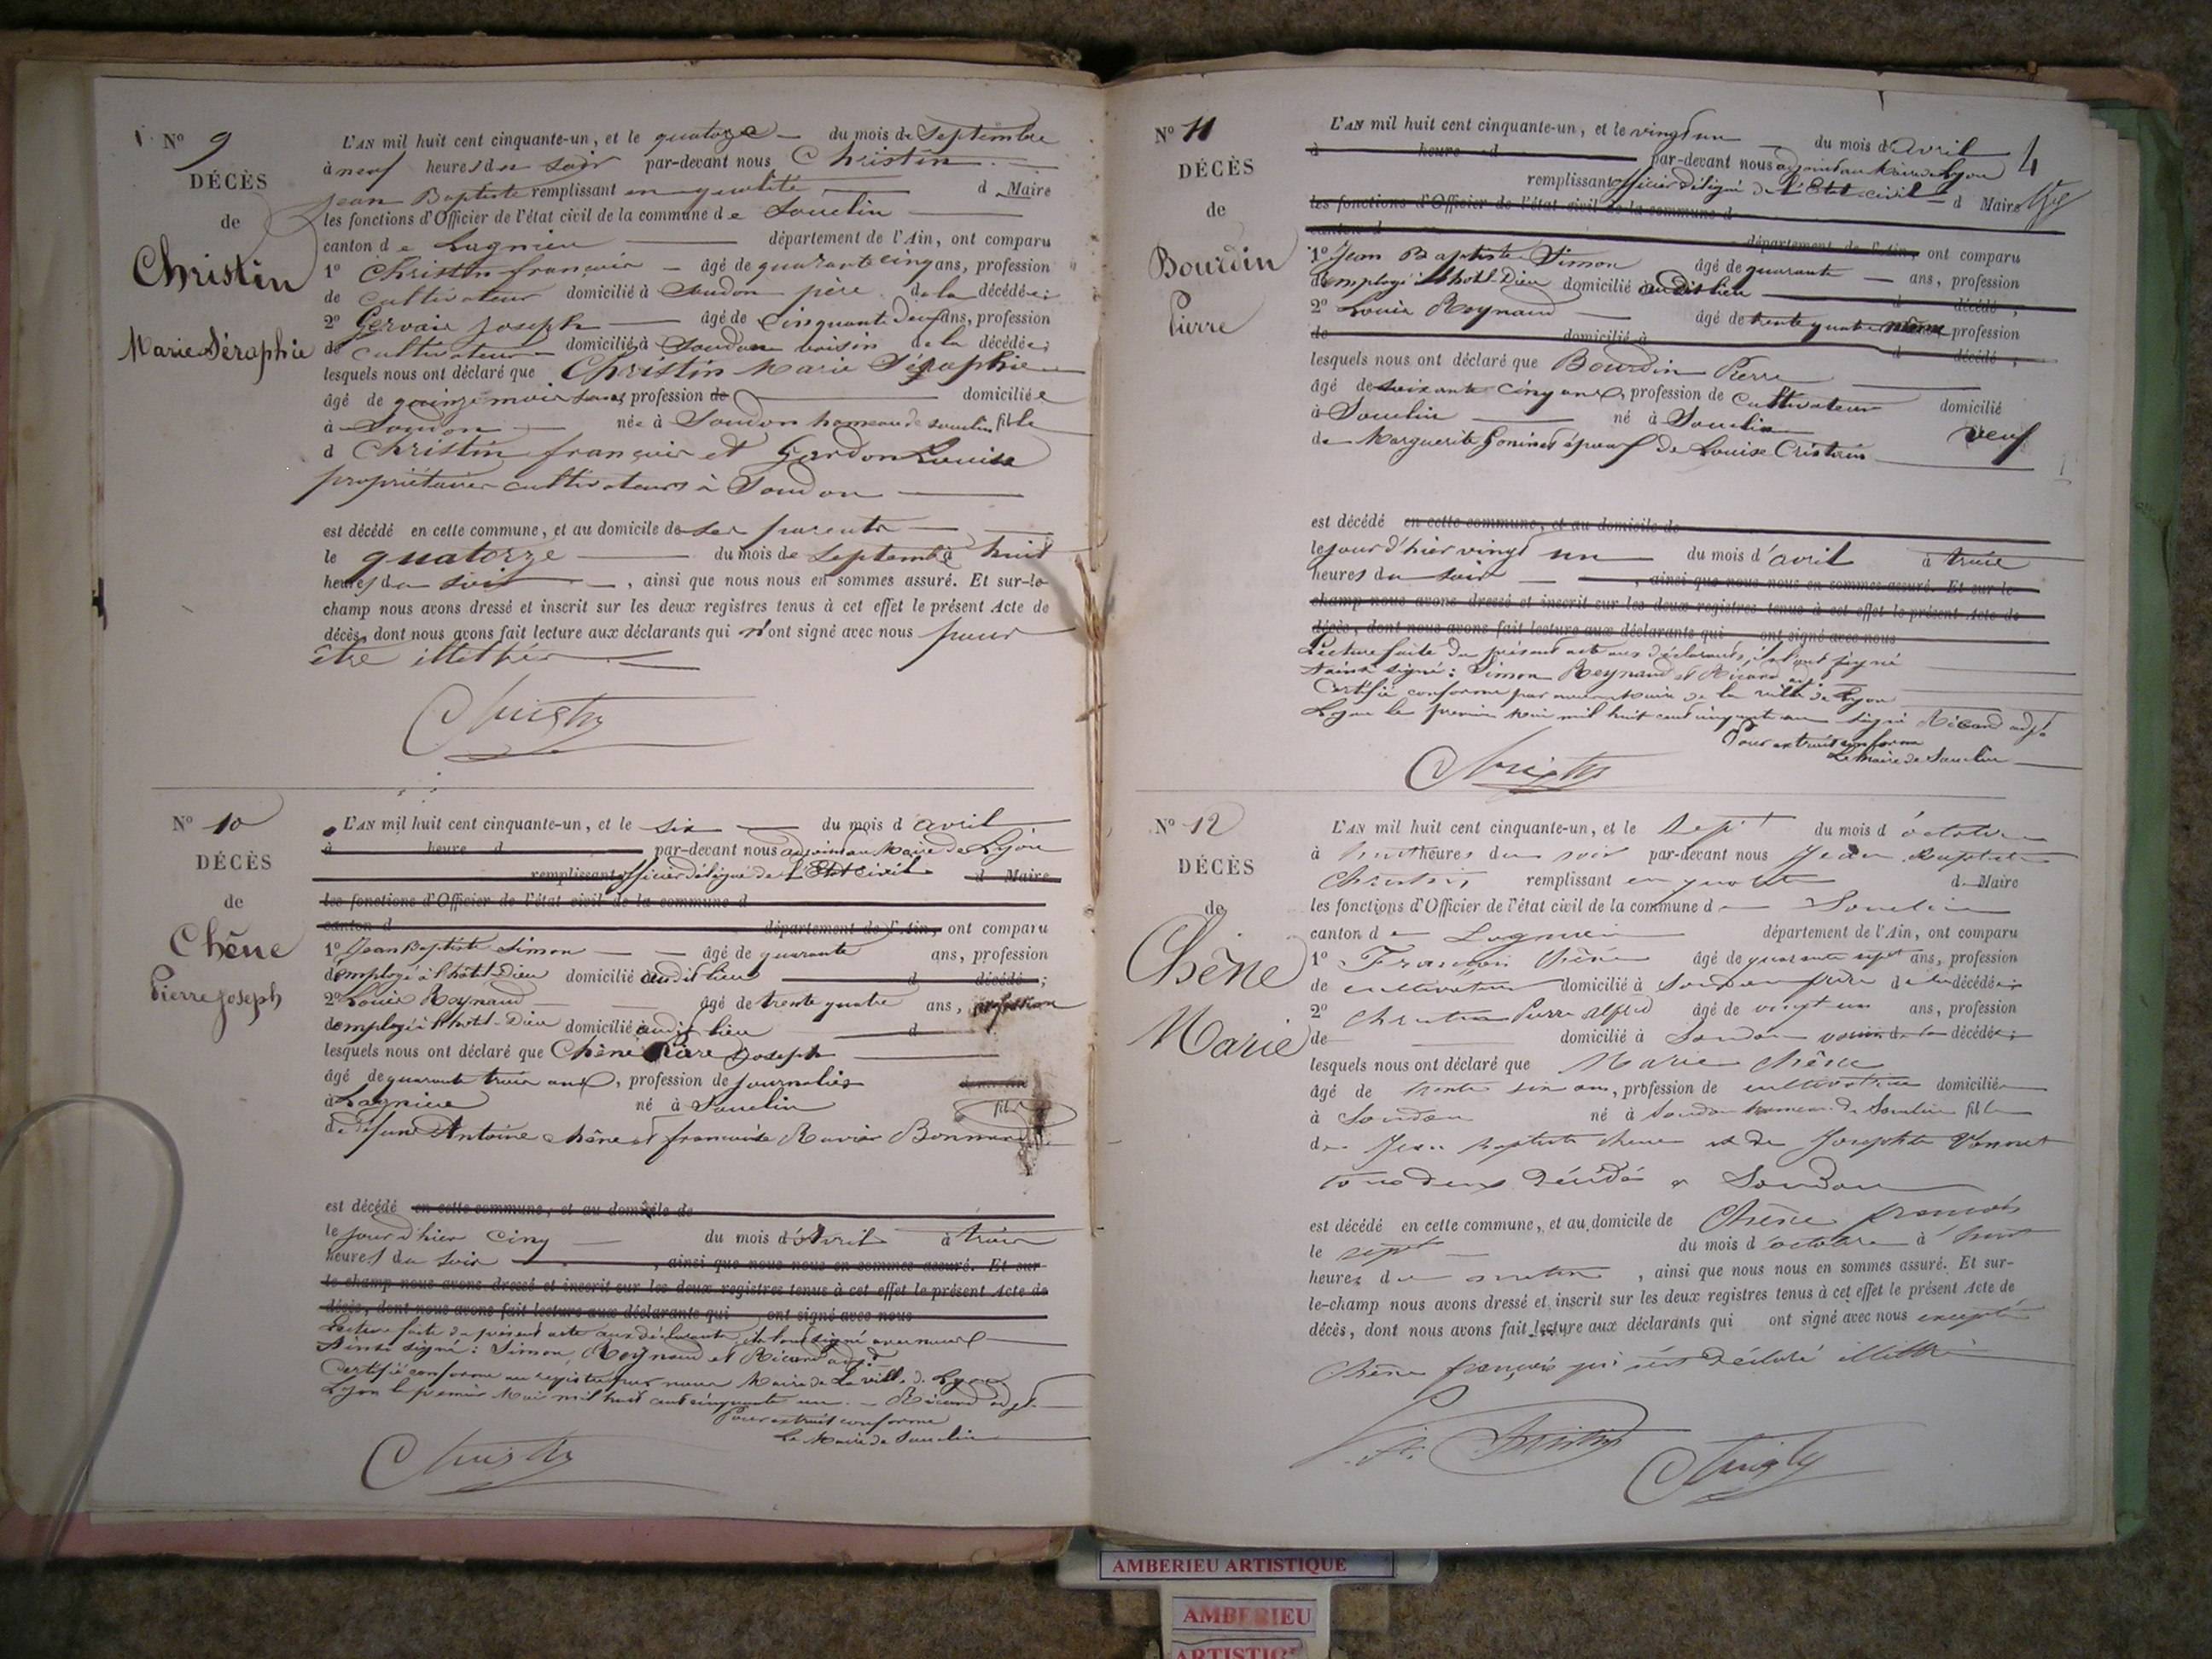 N° 9
DÉCÈS
de
Christin
Marie Séraphie
L'AN mil huit cent cinquante-un, et le quatorze du mois de Septembre
à neuf heures du soir par-devant nous Christin
Jean Baptiste remplissant en qualité de Maire
les fonctions d'Officier de l'état civil de la commune de Souclin
canton de Lagnieu département de l'Ain, ont comparu
1° Christin françois âgé de quarante cinq ans, profession
de cultivateur domicilié à Soudon père de la décédée;
2° Gervais Joseph âgé de Cinquante deux ans, profession
de cultivateur domicilié à Soudon voisin de la décédée;
lesquels nous ont déclaré que Christin Marie Séraphie
âgé de quinze mois sans profession de domiciliée
à Soudon née à Soudon hameau de Souclin fille
d Christin françois et Gardon Louise
propriétaires cultivateurs à Soudon
est décédé en cette commune, et au domicile de ses parents
le quatorze du mois de Septembre à huit
heures du soir, ainsi que nous nous en sommes assuré. Et sur-le-
champ nous avons dressé et inscrit sur les deux registres tenus à cet effet le présent Acte de
décès, dont nous avons fait lecture aux déclarants qui n'ont signé avec nous pour
être illettrés
N° 10
DÉCÈS
de
Chêne
Pierre Joseph
L'AN mil huit cent cinquante-un, et le six du mois d avril
à heure d par-devant nous adjoint au Maire de Lyon
remplissant officier délégué de l'Etat civil d Maire
les fonctions d'Officier de l'état civil de la commune d
canton d département de l'Ain, ont comparu
1° Jean Baptiste Simon âgé de quarante ans, profession
d'employé à l'hôtel-Dieu domicilié audit lieu d décédé;
2° Louis Reynaud âgé de trente quatre ans, profession
d'employé à l'hôtel-Dieu domicilié audit lieu d
lesquels nous ont déclaré que Chêne Pierre Joseph
âgé de quarante trois ans, profession de journalier
à Lagnieu né à Souclin fils
de défunt Antoine Chêne et françoise Ravier Bonnard
est décédé en cette commune, et au domicile de
le jour d'hier cinq du mois d'Avril à trois
heures du soir, ainsi que nous nous en sommes assuré. Et sur-
le champ nous avons dressé et inscrit sur les deux registres tenus à cet effet le présent Acte de
décès, dont nous avons fait lecture aux déclarants qui ont signé avec nous
Lecture faite du présent acte aux déclarants, ils l'ont signé avec nous
Ainsi signé: Simon, Reynaud et Ricard adjt
Certifié conforme au registre par nous Maire de la ville de Lyon
Lyon le premier Mai mil huit cent cinquante un. Ricard adjt
Pour extrait conforme
Le Maire de Souclin
4
N° 11
DÉCÈS
de
Bourdin
Pierre
L'AN mil huit cent cinquante-un, et le vingt un du mois d'avril
à heure d par-devant nous adjoint au Maire de Lyon
remplissant officier délégué de l'Etat civil d Maire
les fonctions d'Officier de l'état civil de la commune d
canton d département de l'Ain, ont comparu
1° Jean Baptiste Simon âgé de quarante ans, profession
d'employé à l'hôtel-Dieu domicilié audit lieu d décédé;
2° Louis Reynaud âgé de trente quatre profession
de domicilié à d décédé;
lesquels nous ont déclaré que Bourdin Pierre
âgé de soixante cinq ans, profession de cultivateur domicilié
à Souclin né à Souclin veuf
de Marguerite Goninet époux de Louise Cristin
est décédé en cette commune, et au domicile de
le jour d'hier vingt un du mois d'avril à trois
heures du soir, ainsi que nous nous en sommes assuré. Et sur-le-
champ nous avons dressé et inscrit sur les deux registres tenus à cet effet le présent Acte de
décès, dont nous avons fait lecture aux déclarants qui ont signé avec nous
Lecture faite du présent acte aux déclarants, ils l'ont signé
Ainsi signé: Simon Reynaud et Ricard adjt
Certifié conforme par nous Maire de la ville de Lyon
Lyon le premier Mai mil huit cent cinquante un signé Ricard adjt
Pour extrait conforme
Le Maire de Souclin
N° 12
DÉCÈS
de
Chêne
Marie
L'AN mil huit cent cinquante-un, et le Sept du mois d'octobre
à huit heures du soir par-devant nous Jean Baptiste
Christin remplissant en qualité de Maire
les fonctions d'Officier de l'état civil de la commune d Souclin
canton de Lagnieu département de l'Ain, ont comparu
1° François Chêne âgé de quarante sept ans, profession
de cultivateur domicilié à Soudon frère de la décédée;
2° Christin Pierre Alfred âgé de vingt un ans, profession
de domicilié à Soudon voisin de la décédée;
lesquels nous ont déclaré que Marie Chêne
âgé de trente six ans, profession de cultivatrice domiciliée
à Soudon né à Soudon hameau de Souclin fille
de Jean Baptiste Chêne et de Josephte Vannet
tous deux décédés à Soudon
est décédé en cette commune, et au domicile de Chêne françois
le sept du mois d'octobre à huit
heures du matin, ainsi que nous nous en sommes assuré. Et sur-
le-champ nous avons dressé et inscrit sur les deux registres tenus à cet effet le présent Acte de
décès, dont nous avons fait lecture aux déclarants qui ont signé avec nous excepté
Chêne françois qui s'est déclaré illettré
AMBERIEU ARTISTIQUE
AMBERIEU
ARTISTIQ